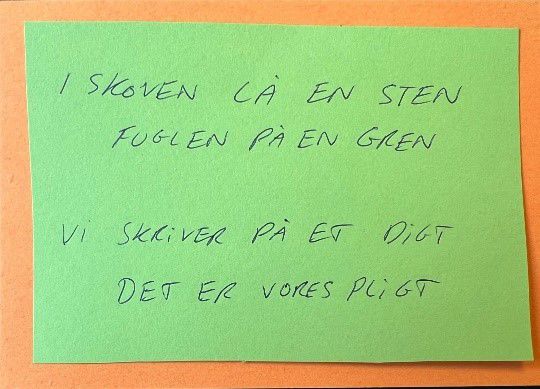 I SKOVEN LÅ EN STEN
FUGLEN PÅ EN GREN
Vi SKRiVER PÅ ET DiGT
DET ER VORES PLiGT